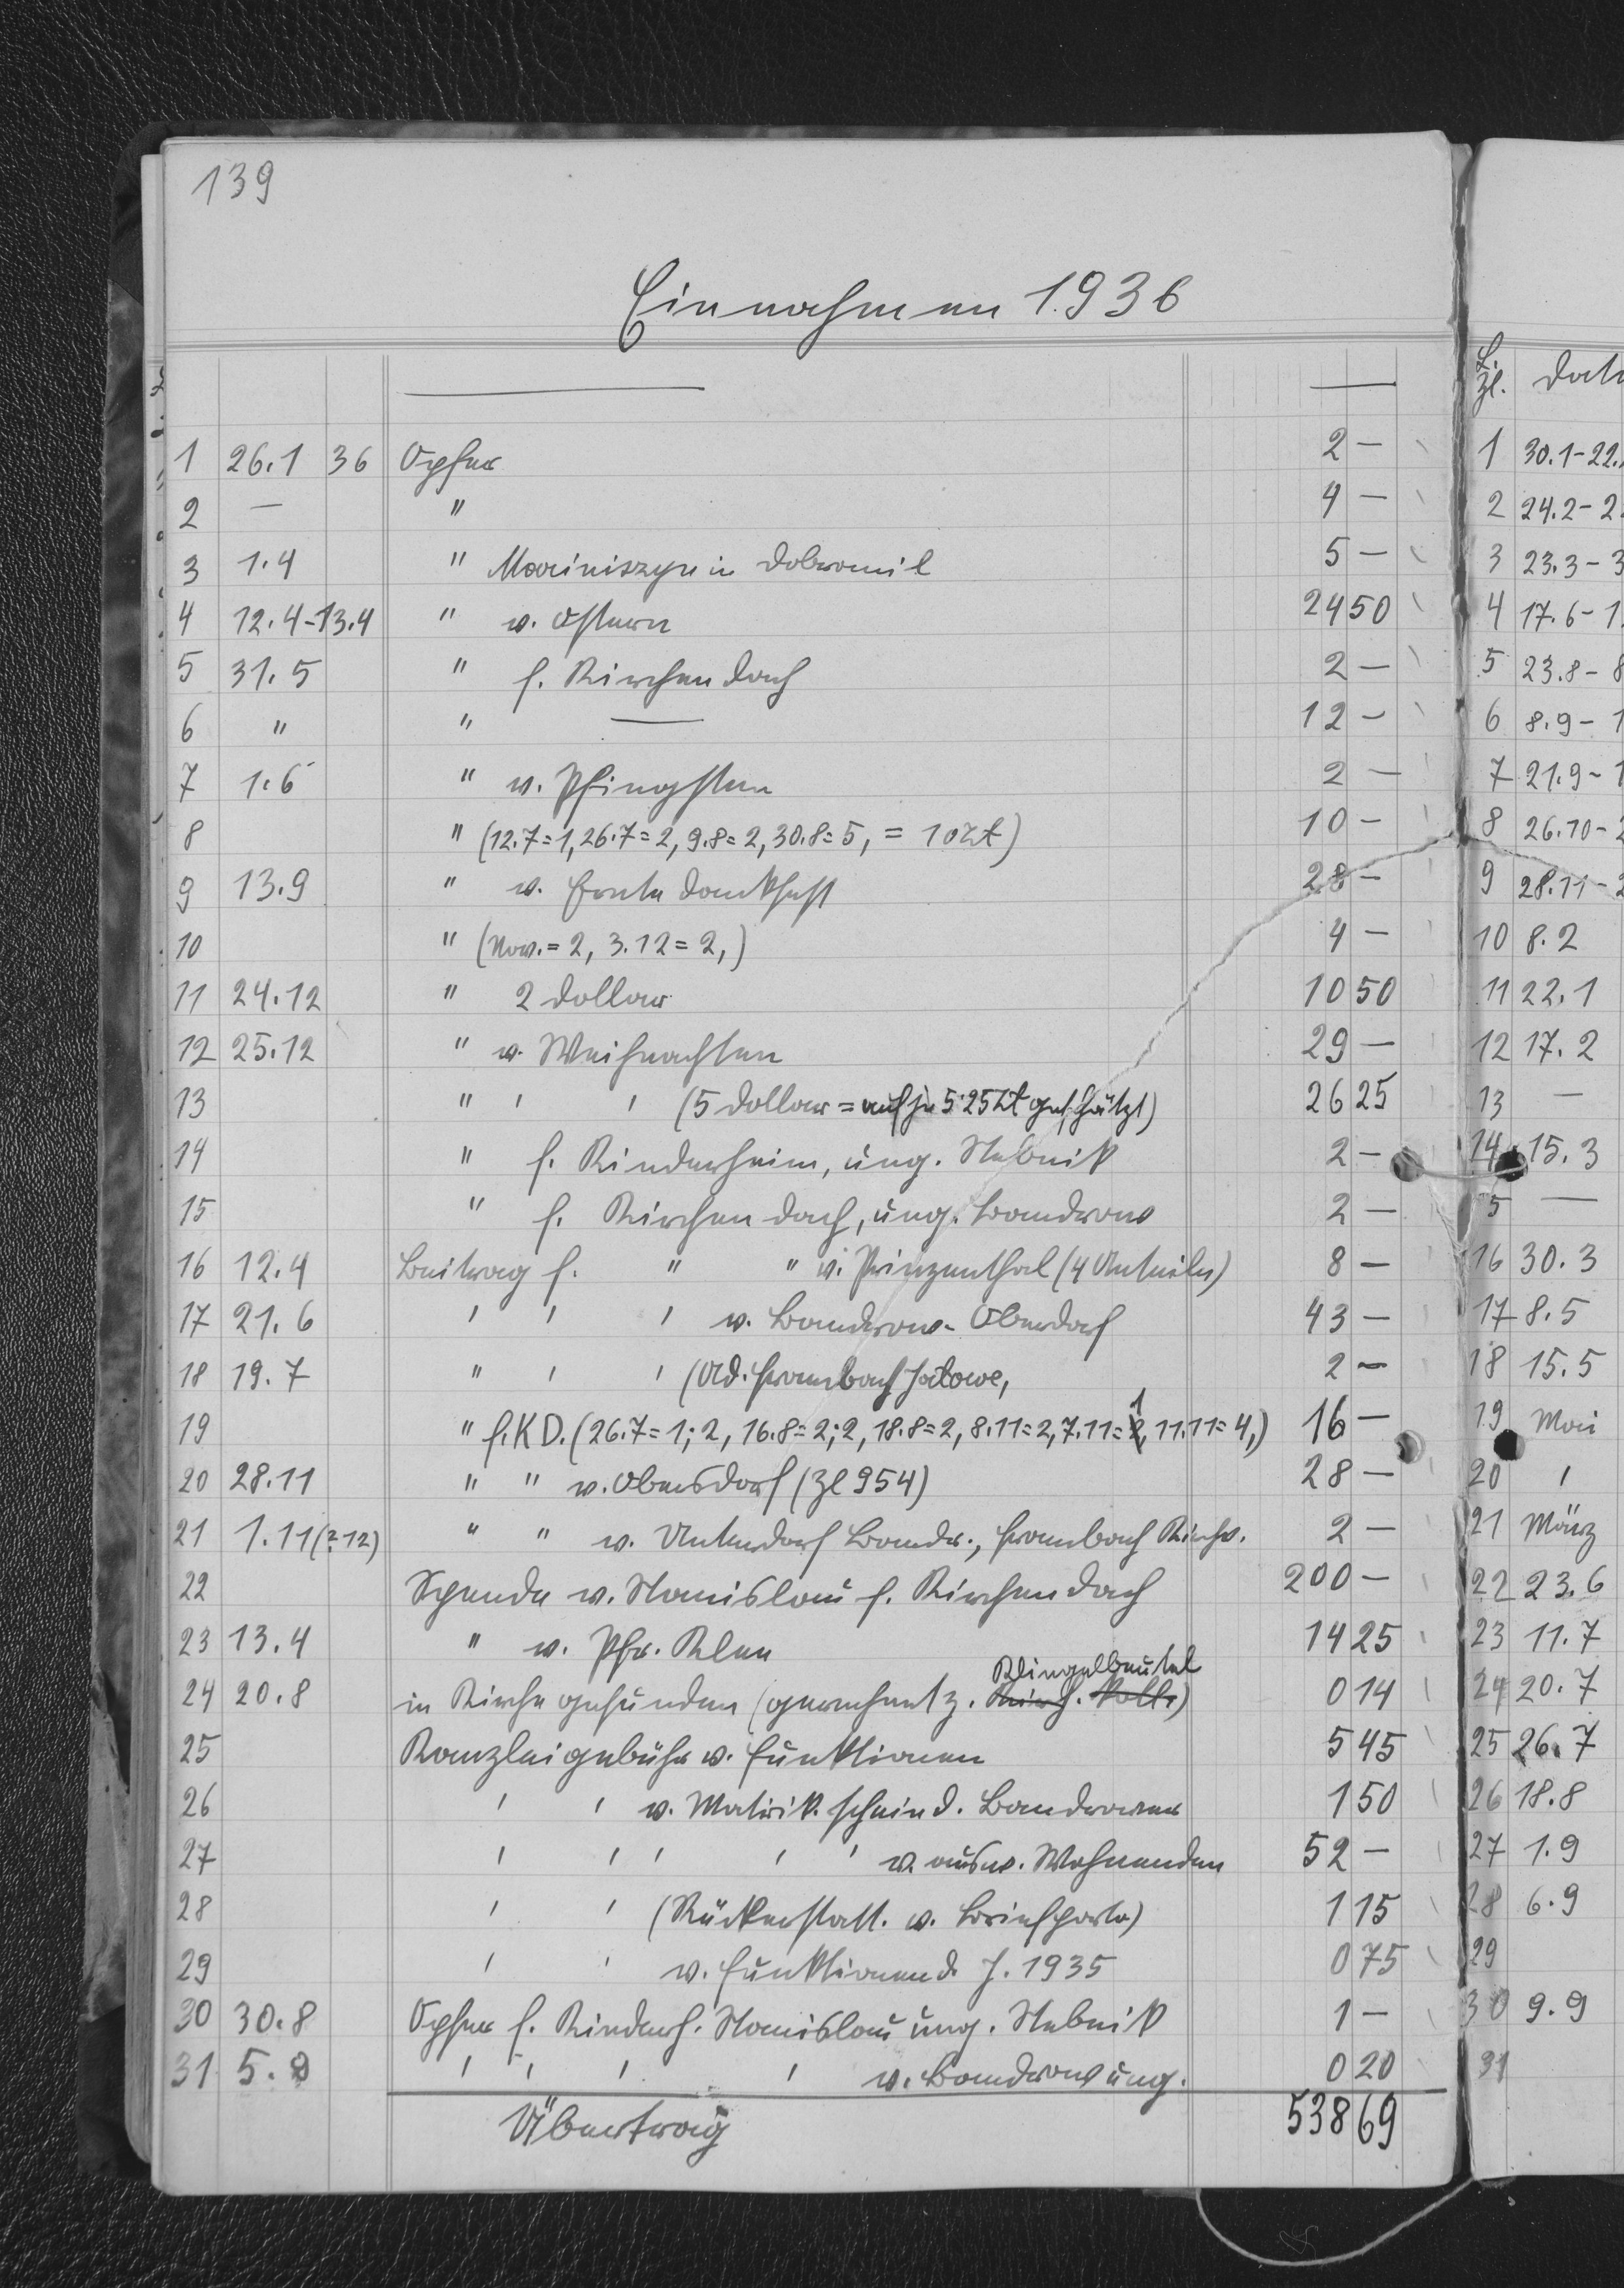 139
Einnahmen 1936
1 26.1 36 Opfer 2 —
2 — " 4 —
3 1.4 " in Dobromil 5 —
4 12.4-13.4 " v. Ostern 24 50
5 31.5 " f. Kirchendach 2 —
6 " " — 12 —
7 1.6 " v. Pfingsten 2 —
8 " (12.7=1, 26.7=2, 9.8=2, 30.8=5, = 10 zł) 10 —
9 13.9 " v. Erntedankfest 28 —
10 " (Nov.=2, 3.12=2,) 4 —
11 24.12 " 2 Dollar 10 50
12 25.12 " v. Weihnachten 29 —
13 " ' ' (5 Dollar = auf je 5·25 zł geschätzt) 26 25
14 " f. Kinderheim, ung. Stebnik 2 —
15 " f. Kirchendach, ung. Bandrow 2 —
16 12.4 Beitrag f. " " v. Prinzenthal (4 Anteile) 8 —
17 21.6 ' ' ' v. Bandrow-Oberdorf 43 —
18 19.7 " ' ' (Ad. Frambach Jałowe, 2 —
19 " f. KD. (26.7=1; 2, 16.8=2; 2, 18.8=2, 8.11=2, 7.11=1, 11.11=4,) 16 —
20 28.11 " " v. Obersdorf (Zl 954) 28 —
21 1.11 (?12) " " v. Unterdorf Bandr., Frambach 2 —
22 Spende v. Stanislau f. Kirchendach 200 —
23 13.4 " v. Pfr. Klee 14 25
Klingelbeutel
24 20.8 in Kirche gefunden (gerechnet z. Kirch. Koll.) 0 14
25 Kanzleigebühr v. Funktionen 5 45
26 ' ' v. Matrik.schein d. Bandrower 1 50
27 ' ' ' ' ' v. ausw. Wohnenden 52 —
28 ' ' (Rückerstatt. v. Briefporto) 1 15
29 ' ' v. Funktionen d. J. 1935 0 75
30 30.8 Opfer f. Kinderh. Stanislau ung. Stebnik 1 —
31 5. ' ' ' ' v. Bandrow ung. 0 20
Übertrag 538 69
L. Zl. Dat
1 30.1-22.
2 24.2-2
3 23.3-3
4 17.6-1
5 23.8-8
6 8.9-1
7 21.9-1
8 26.10-2
9 28.11-2
10 8.2
11 22.1
12 17.2
13 —
14 15.3
5 —
16 30.3
17 8.5
18 15.5
19 Mai
20 '
21 März
22 23.6
23 11.7
24 20.7
25 26.7
26 18.8
27 1.9
28 6.9
29
30 9.9
31